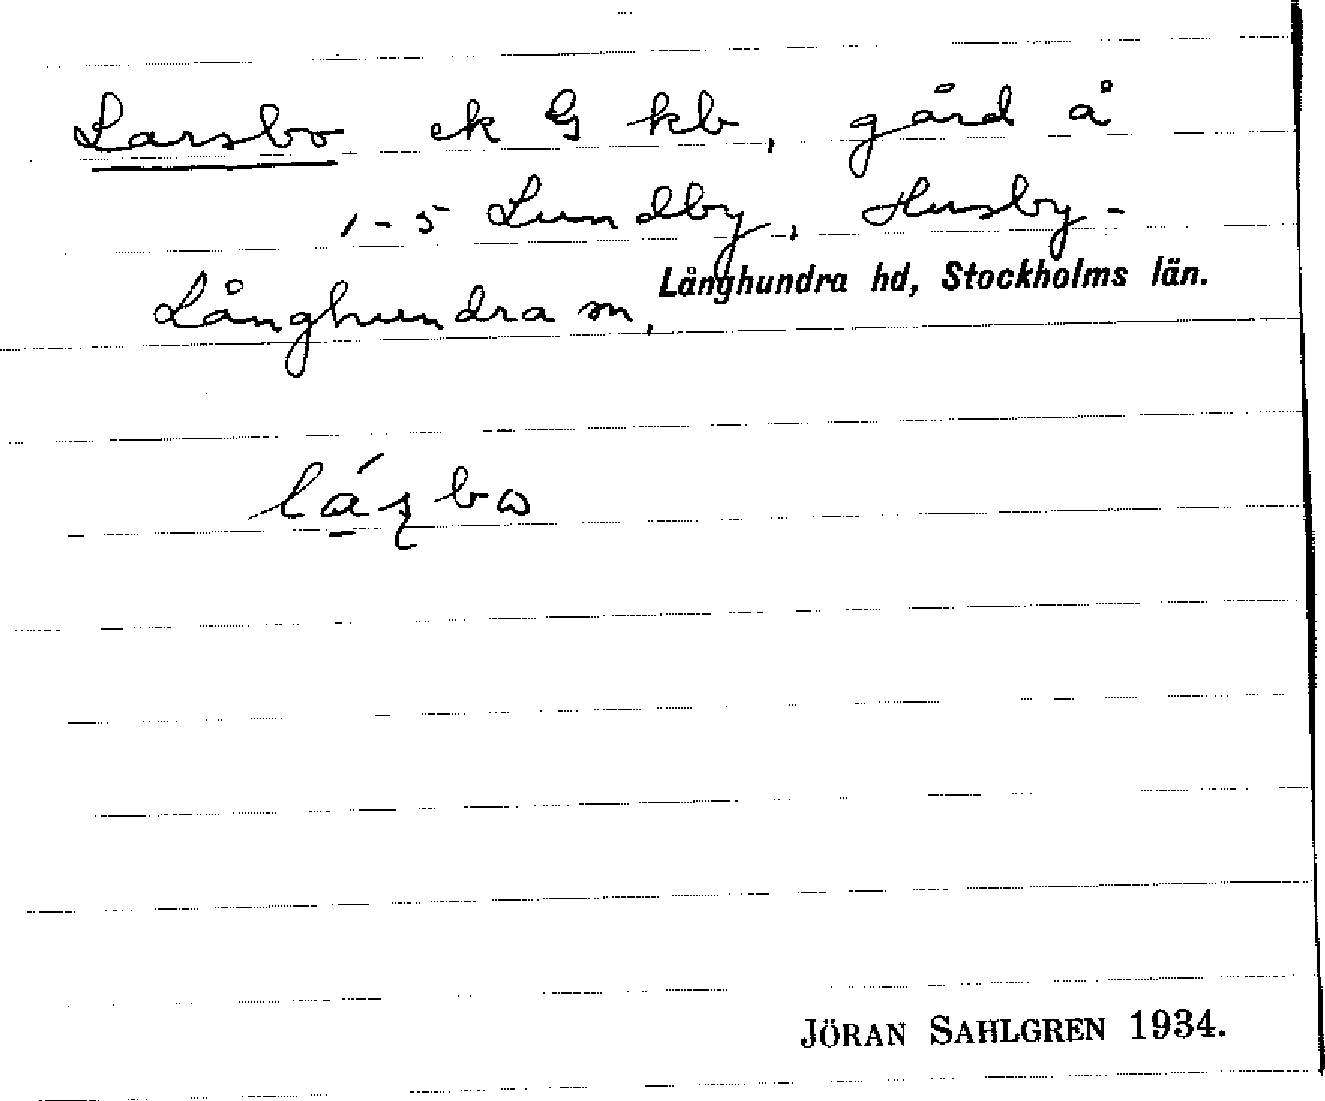 Larsbo ek G kb, gård å
1-5 Lundby, Husby-
Långhundra sn, Långhundra hd, Stockholms län.
JÖRAN SAHLGREN 1934.